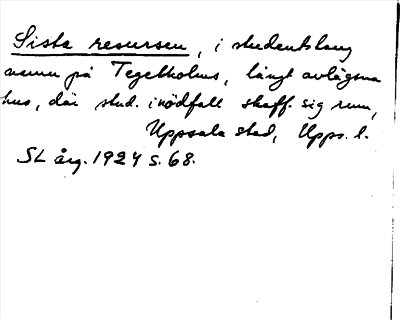 Sista resursen, i studentslang
namn på Tegelholms, långt avlägsna
hus, där stud. i nödfall skaff. sig rum,
Uppsala stad, Upps. l.
SL årg. 1924 s. 68.